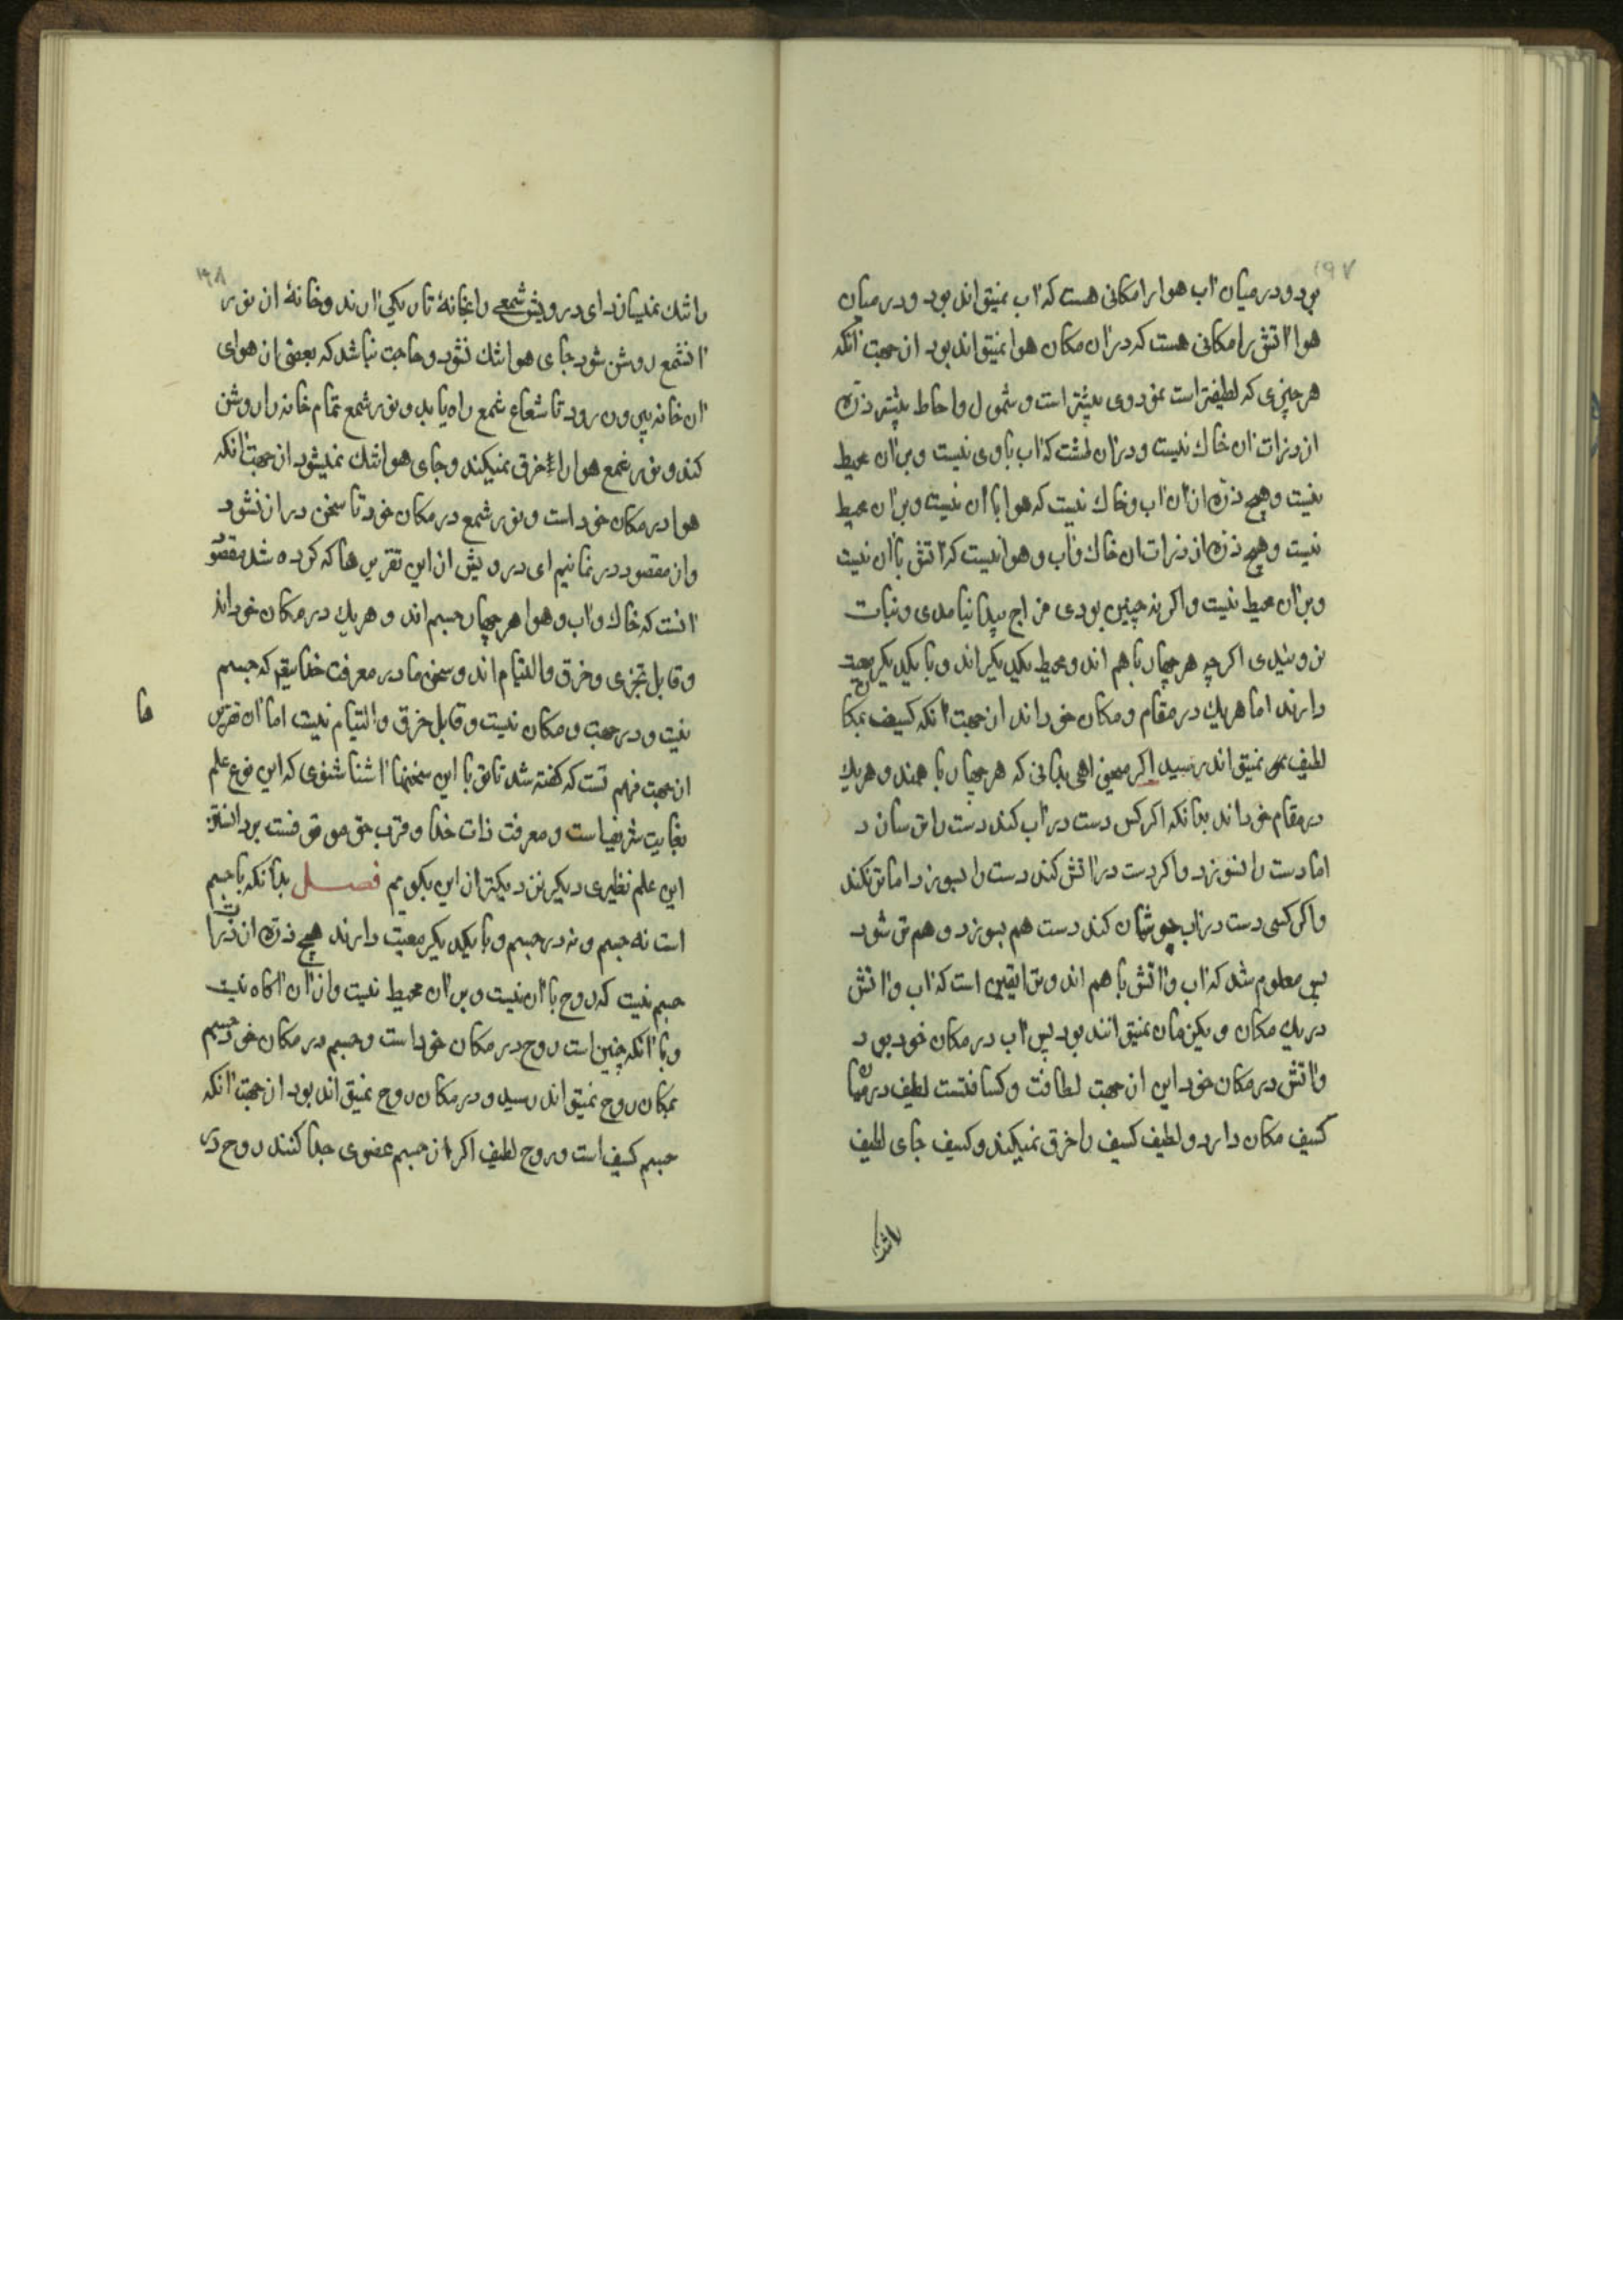 ۱۹۷
بود و در میان آب هوا را مکانی هست که آب نمیتواند بود و در میان
هوا آتش را مکانی هست که در آن مکان هوا نمیتواند بود از جهت آنکه
هر چیزی که لطیفتر است نفوذ وی بیشتر است و شمول و احاط بیشتر ذرهٔ
از ذرات آن خاک نیست و در آن طشت که آب با وی نیست و بر آن محیط
نیست و هیچ ذرهٔ از آن آب و خاک نیست که هوا با آن نیست و بر آن محیط
نیست و هیچ ذرهٔ از ذرات آن خاک و آب و هوا نیست که آتش با آن نیست
و بر آن محیط نیست و اگر نه چنین بودی مزاج پیدا نیامدی و نبات
نروئیدی اگر چه هر چهار با هم اند و محیط یکدیگراند و با یکدیگر معیت
دارند اما هر یک در مقام و مکان خوداند از جهت آنکه کثیف بمکان
لطیف نمیتواند رسید اگر میخواهی بدانی که هر چهار با همند و هر یک
در مقام خوداند بدانکه اگر کس دست در آب کند دست را تر سازد
اما دست را نسوزد و اگر دست در آتش کند دست را بسوزد اما تر نکند
و اگر کسی دست در آب جوشان کند دست هم بسوزد و هم تر شود
پس معلوم شد که آب و آتش با هم اند و ترا یقین است که آب و آتش
در یک مکان و یکزمان نمیتوانند بود پس آب در مکان خود بود
و آتش در مکان خود این از جهت لطافت و کثافتست لطیف در میان
کثیف مکان دارد و لطیف کثیف را خرق نمیکند و کثیف جای لطیف
را تنک
۱۹۸
را تنک نمیسازد ای درویش شمعی را بخانهٔ تاریکی آرند و خانهٔ از نور
آن شمع روشن شود جای هوا تنک نشود و حاجت نباشد که بعضی از هوای
آن خانه بیرون رود تا شعاع شمع راه یابد و نور شمع تمام خانه را روشن
کند و نور شمع هوا را خرق نمیکند و جای هوا تنک نمیشود از جهت آنکه
هوا در مکان خود است و نور شمع در مکان خود تا سخن دراز نشود
و از مقصود در نمانیم ای درویش از این تقریرها که کرده شد مقصود
آنست که خاک و آب و هوا هر چهار جسم اند و هر یک در مکان خوداند
و قابل تجزی و خرق و التیام اند و سخن ما در معرفت خدایتع که جسم
نیست و در جهت و مکان نیست و قابل خرق و التیام نیست اما آن تقریر
ها
از جهت فهم تست که گفته شد تا تو با این سخنها آشنا شوی که این نوع علم
بغایت شریف است و معرفت ذات خدا و قرب حق موقوفست بر دانستن
این علم نظیری دیگر نزدیکتر از این بگویم فصل بدانکه با جسم
است نه جسم و نه در جسم و با یکدیگر معیت دارند هیچ ذرهٔ از ذرات
جسم نیست که روح با آن نیست و بر آن محیط نیست و از آن آگاه نیست
و با آنکه چنین است روح در مکان خود است و جسم در مکان خود جسم
بمکان روح نمیتواند رسید و در مکان روح نمیتواند بود از جهت آنکه
جسم کثیف است و روح لطیف اگر از جسم عضوی جدا کنند روح در